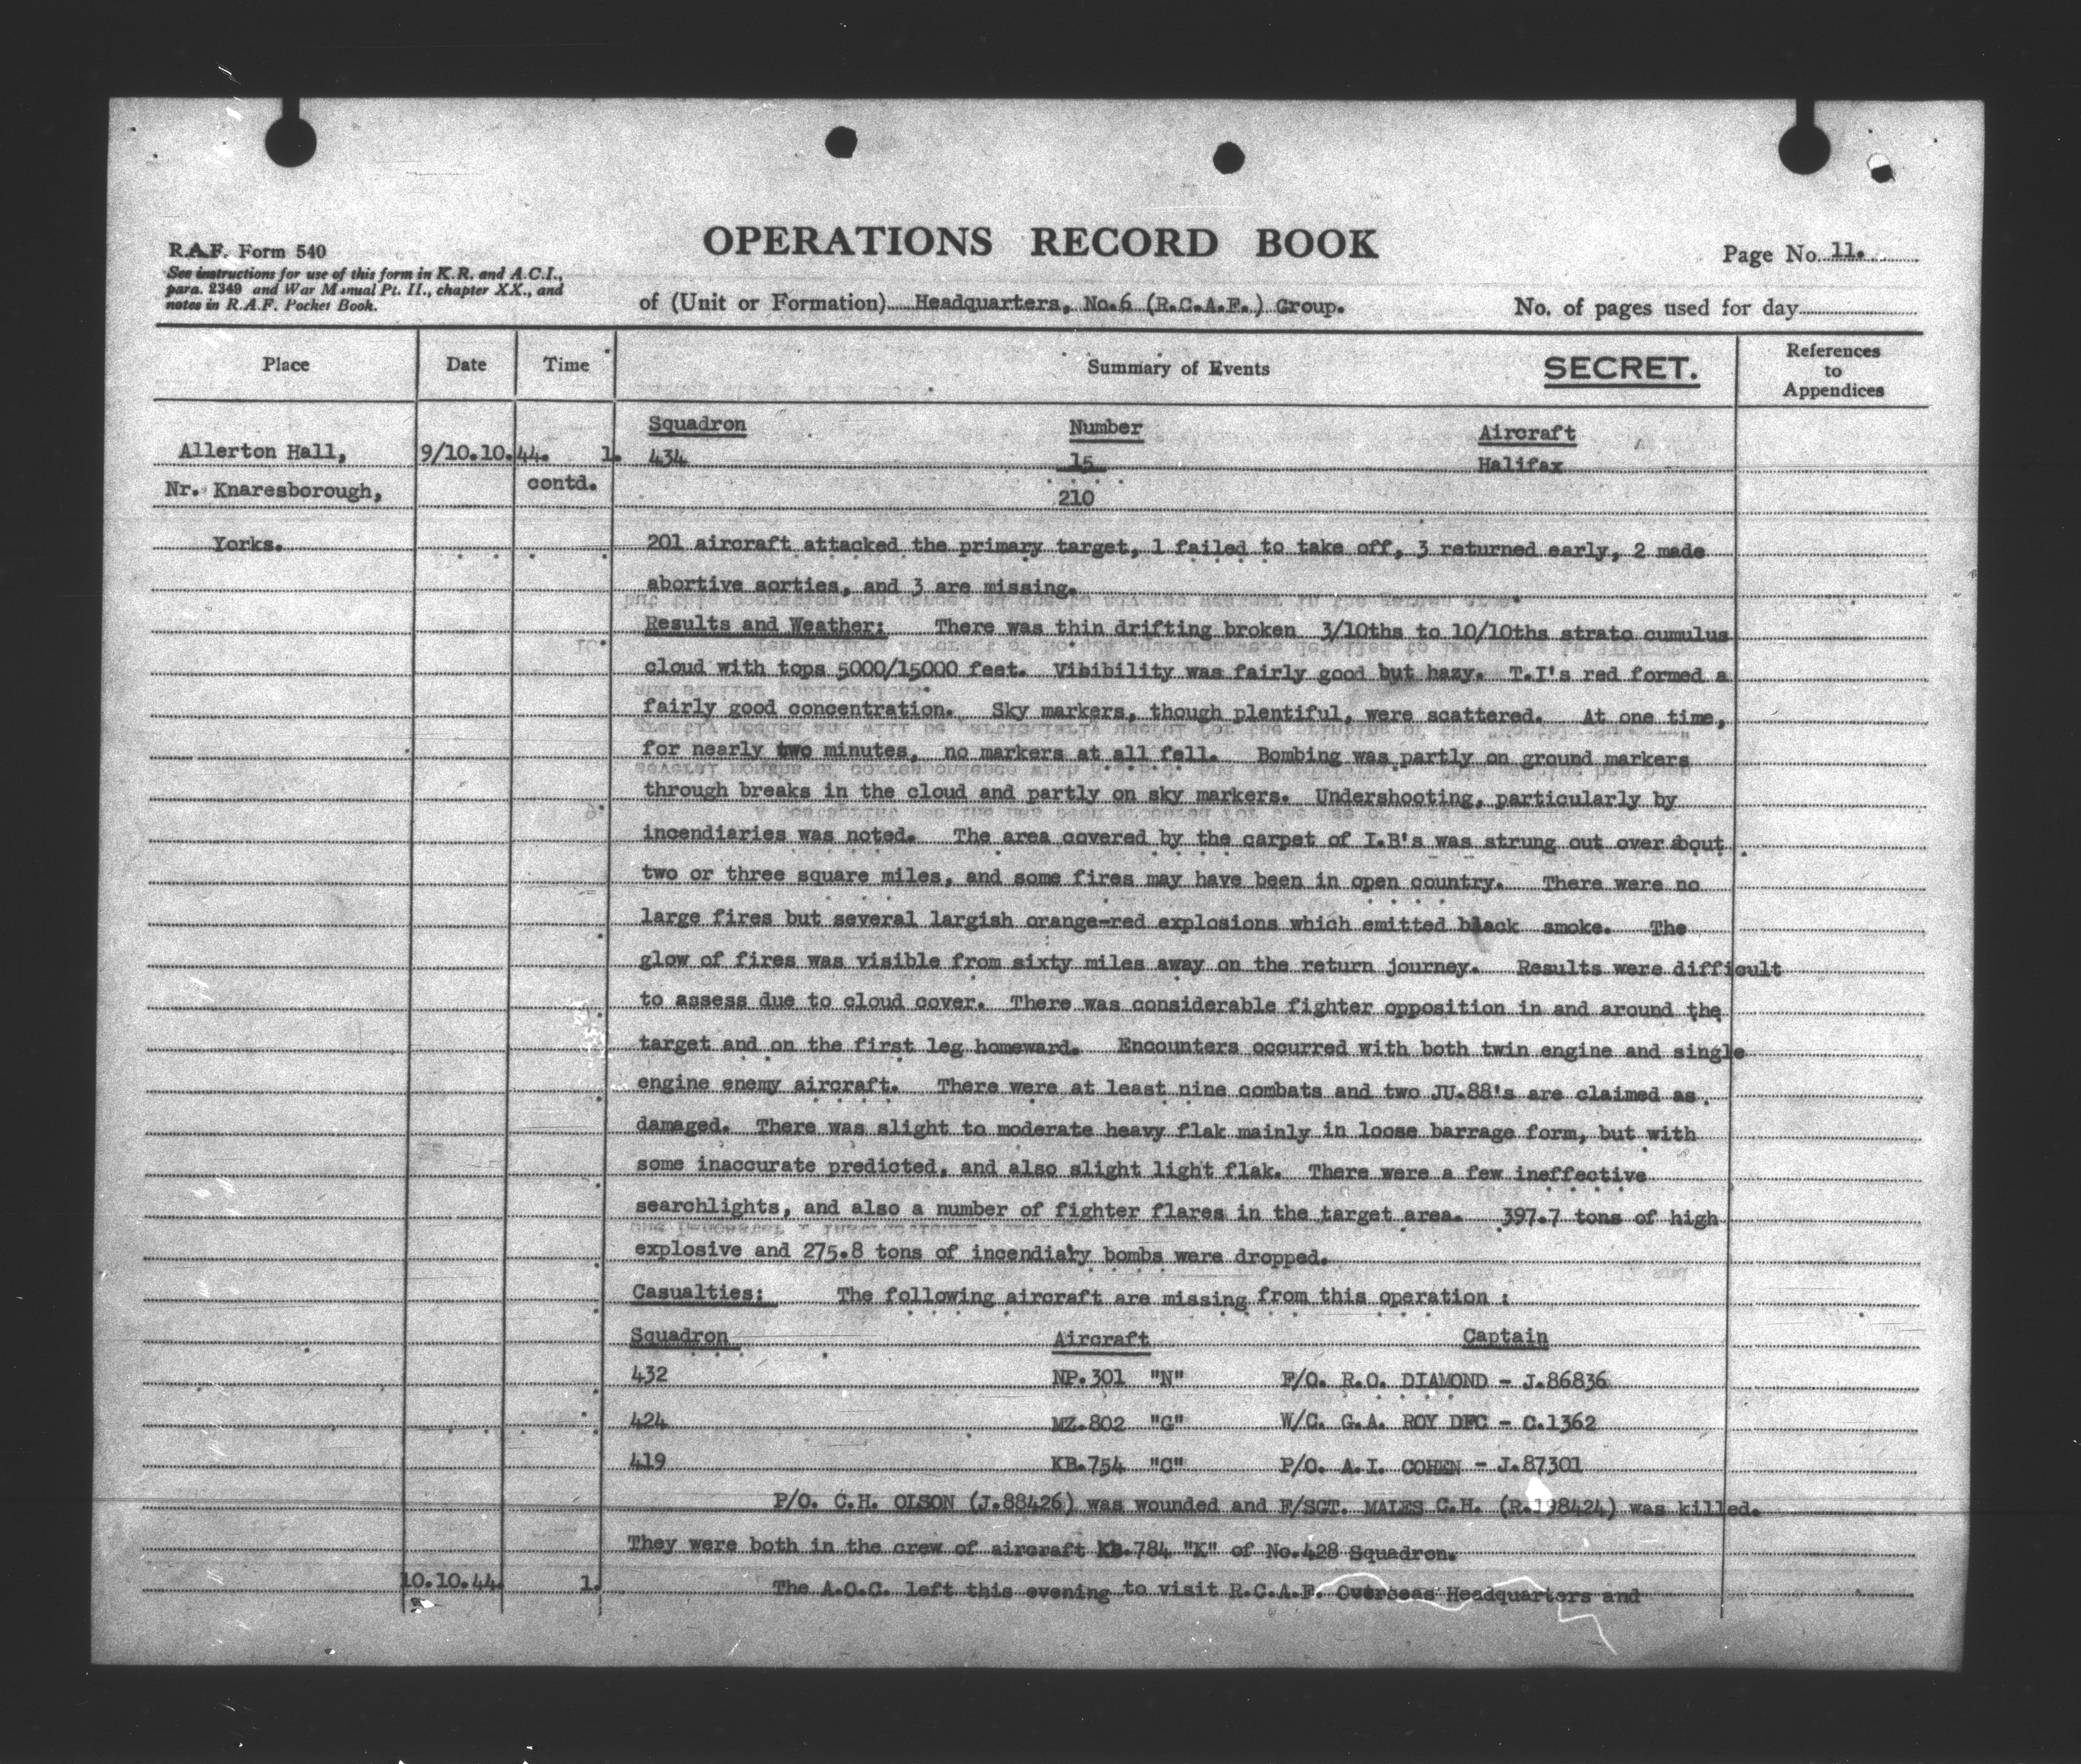 OPERATIONS RECORD BOOK
R.A.F. Form 540
See instructions for use of this form in K.R. and A.C.I.,
para. 2349 and War Manual Pt. II., chapter XX., and
notes in R.A.F. Pocket Book.
Page No. 11.
of (Unit or Formation) Headquarters, No.6 (R.C.A.F.) Group.
No. of pages used for day
Place Date Time Summary of Events SECRET. References to Appendices
Squadron Number Aircraft
Allerton Hall, 9/10.10.44. 1. 434 15 Halifax
Nr. Knaresborough, contd. 210
Yorks. 201 aircraft attacked the primary target, 1 failed to take off, 3 returned early, 2 made
abortive sorties, and 3 are missing.
Results and Weather: There was thin drifting broken 3/10ths to 10/10ths strato cumulus
cloud with tops 5000/15000 feet. Vibibility was fairly good but hazy. T.I's red formed a
fairly good concentration. Sky markers, though plentiful, were scattered. At one time,
for nearly two minutes, no markers at all fell. Bombing was partly on ground markers
through breaks in the cloud and partly on sky markers. Undershooting, particularly by
incendiaries was noted. The area covered by the carpet of I.B's was strung out over about
two or three square miles, and some fires may have been in open country. There were no
large fires but several largish orange-red explosions which emitted black smoke. The
glow of fires was visible from sixty miles away on the return journey. Results were difficult
to assess due to cloud cover. There was considerable fighter opposition in and around the
target and on the first leg homeward. Encounters occurred with both twin engine and single
engine enemy aircraft. There were at least nine combats and two JU.88's are claimed as
damaged. There was slight to moderate heavy flak mainly in loose barrage form, but with
some inaccurate predicted, and also slight light flak. There were a few ineffective
searchlights, and also a number of fighter flares in the target area. 397.7 tons of high
explosive and 275.8 tons of incendiary bombs were dropped.
Casualties: The following aircraft are missing from this operation :
Squadron Aircraft Captain
432 NP.301 "N" F/O. R.O. DIAMOND - J.86836
424 MZ.802 "G" W/C. G.A. ROY DFC - C.1362
419 KB.754 "C" P/O. A.I. COHEN - J.87301
P/O. C.H. OLSON (J.88426) was wounded and F/SGT. MALES C.H. (R.198424) was killed.
They were both in the crew of aircraft KB.784 "K" of No.428 Squadron.
10.10.44. 1. The A.O.C. left this evening to visit R.C.A.F. Overseas Headquarters and